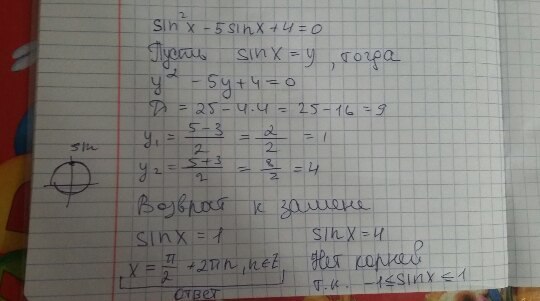 sin²x - 5sinx + 4 = 0
Пусть sinx = y, тогда
y² - 5y + 4 = 0
D = 25 - 4·4 = 25 - 16 = 9
y₁ = (5-3)/2 = 2/2 = 1
sin
y₂ = (5+3)/2 = 8/2 = 4
Возврат к замене
sinx = 1 sinx = 4
x = π/2 + 2πn, n∈Z Нет корней
ответ т.к. -1≤sinx≤1